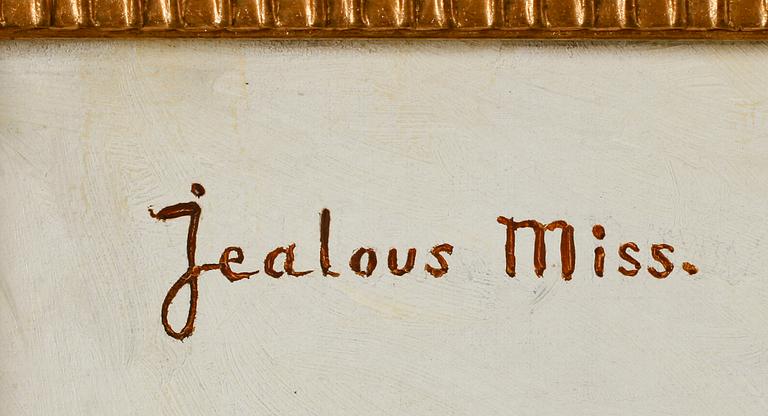 Jealous Miss.